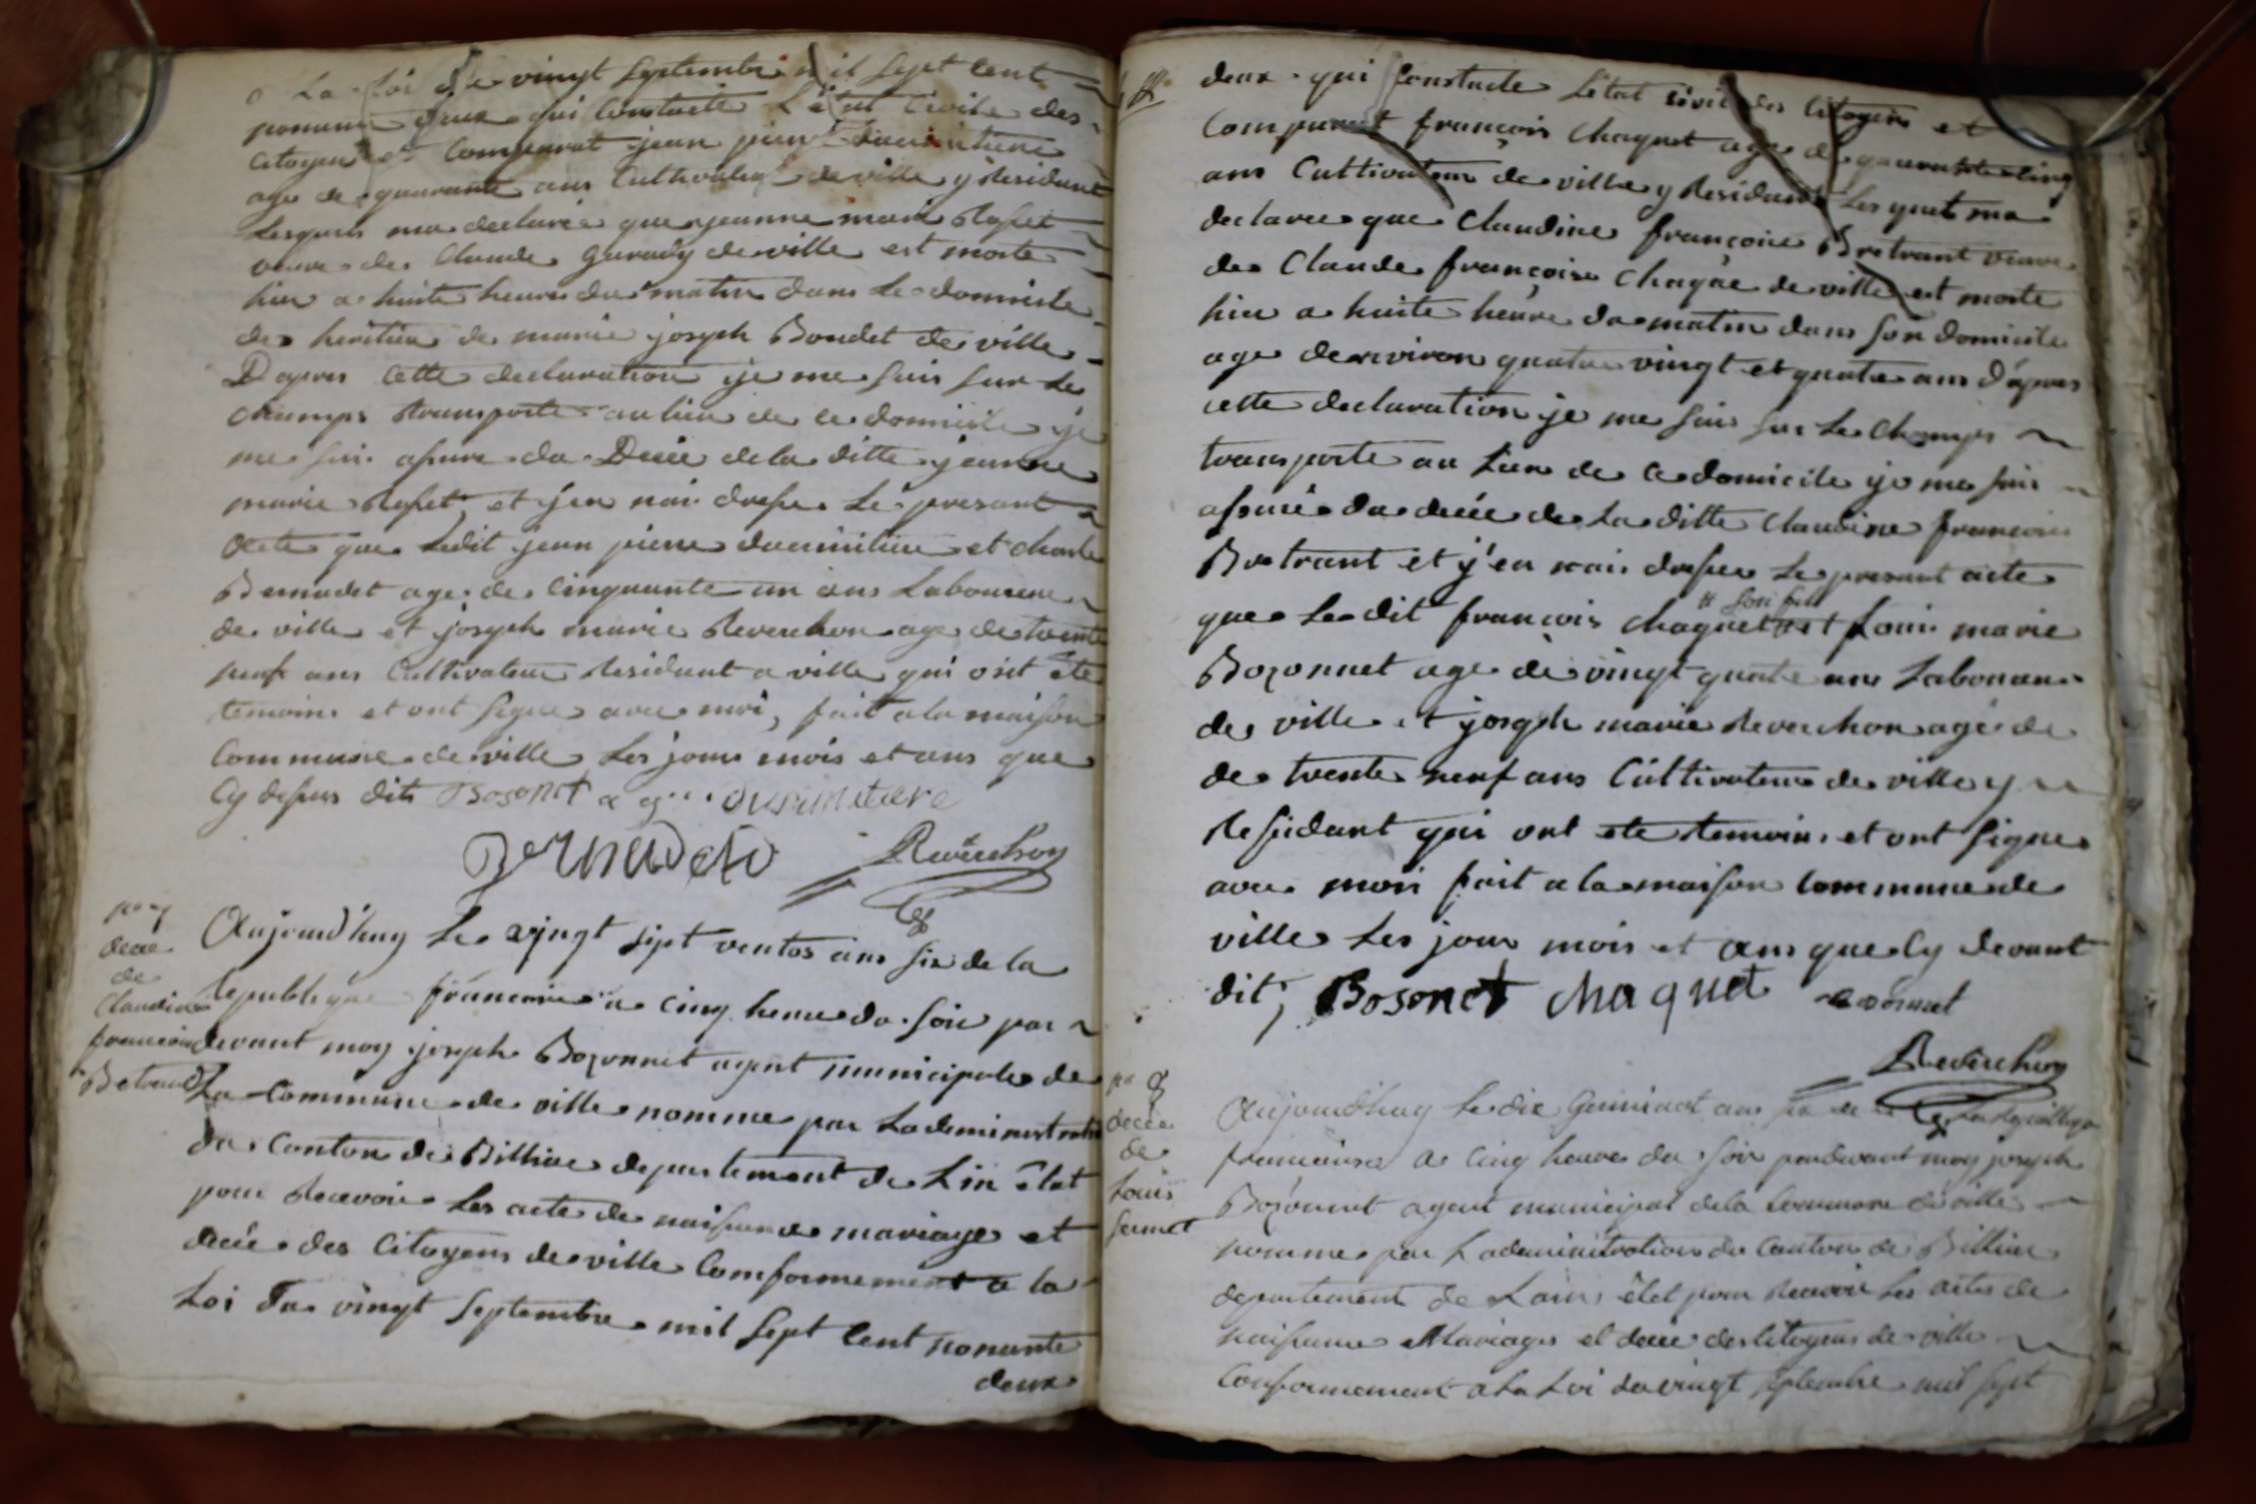 a La Loi de vingt Septembre mil Sept Cent
nonante deux qui Constacte L'état Civile des
Citoyens et Comparut jean pierre
age de quarante ans Cultivateur de ville y Residant
Lesquels ma declaré que jeanne marie Rosset
veuve de Claude de ville est morte
hier a huite heures du matin dans Le domicile
des heritiers de marie joseph Bondet de ville
Dapres Cette declaration je me suis sur Le
champs transporte au lieu de ce domicile je
me suis assure du Decée de la ditte jeanne
marie Rosset et j'en nai dresse Le presant
acte que Ledit jean pierre et charle
Bernadet age de Cinquante un ans Laboureur
de ville et joseph marie Reverchon age de trente
neuf ans Cultivateur Residant a ville qui ont été
temoins et ont signe avec moi, fait a la maison
Commune de ville Les jour mois et ans que
Cy dessus dit Bosonet
Bernadet Reverchon
n° 7
decée
de
Claudine
francoise
Betrand
Aujourd'huy Le vingt sept ventos ans six de la
Republique francoise a Cinq heure du soir par
devant moy joseph Bozonnet agent municipale de
La Commune de ville nomme par Ladeministration
du Canton de Billiat departement de Lin élut
pour Recevoir Les acte de naissance mariage et
decée des Citoyens de ville Comformement a la
Loi du vingt Septembre mil Sept Cent nonante
deux
deux qui Constacte Létat civil des Citoyens et
Comparut françois Chaquet age de quarante cinq
ans Cultivateur de ville y Residant Lesquels ma
declaree que Claudine françoise Bretrant veuve
de Claude françois Chaque de ville est morte
hier a huite heure du matin dans son domicile
age de environ quatre vingt et quatre ans d'apres
cette declaration je me suis sur Le Champs
transporte au Lieu de ce domicile je me suis
assurée du decée de La ditte Claudine francoise
Bretrant et j'en nais dressee Le presant acte
que Le dit françois Chaquet et Louis marie
son fils
Bozonnet age de vingt quatre ans Laboureur
de ville et joseph marie Reverchon agé de
de trente neuf ans Cultivateur de ville y
Residant qui ont ete temoins et ont signe
avec moi fait a la maison Commune de
ville Les jour mois et ans que Cy devant
dit, Bosonet Chaquet
Reverchon
n° 8
decée
de
Louis
Aujourdhuy Le dix Germinal an six de la Republique
francaise a Cinq heures du soir pardevant moy joseph
Bozonnet agent municipal de la Commune de ville
nomme par Ladministration du Canton de Billiat
departement de Lain, élel pour Recevoir Les actes de
naissance Mariages et decée des Citoyens de ville
Conformement a La Loi du vingt septembre mil sept